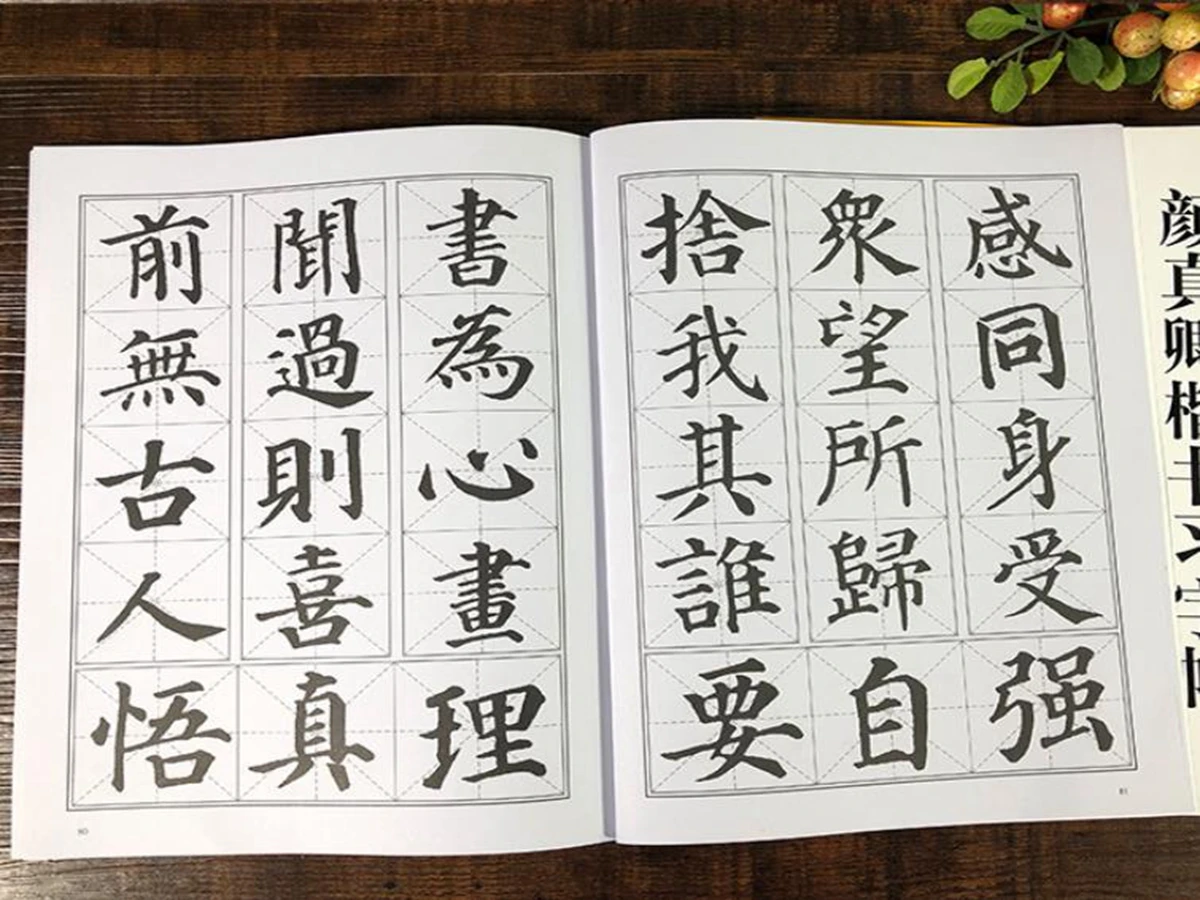 前無古人
聞過則喜
書為心畫
悟真理
80
捨我其誰
衆望所歸
感同身受
要自强
81
颜真卿楷书习字